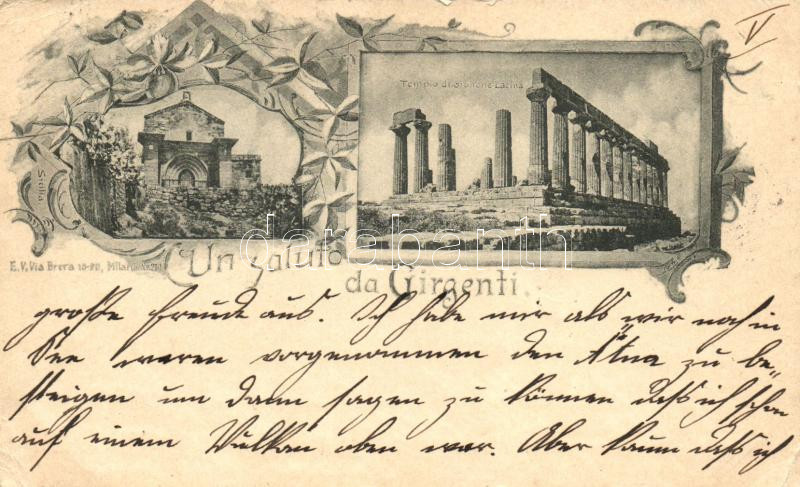 V
Tempio di Giunone Lacina
Sicilia
Un saluto
da Girgenti
E. V. Via Brera 18-20, Milano
darabanth
große Freude aus. Ich habe mir als wir noch in
See waren vorgenommen den Ätna zu be-
steigen um dann sagen zu können daß ich schon
auf einem Vulkan oben war. Aber kaum daß ich